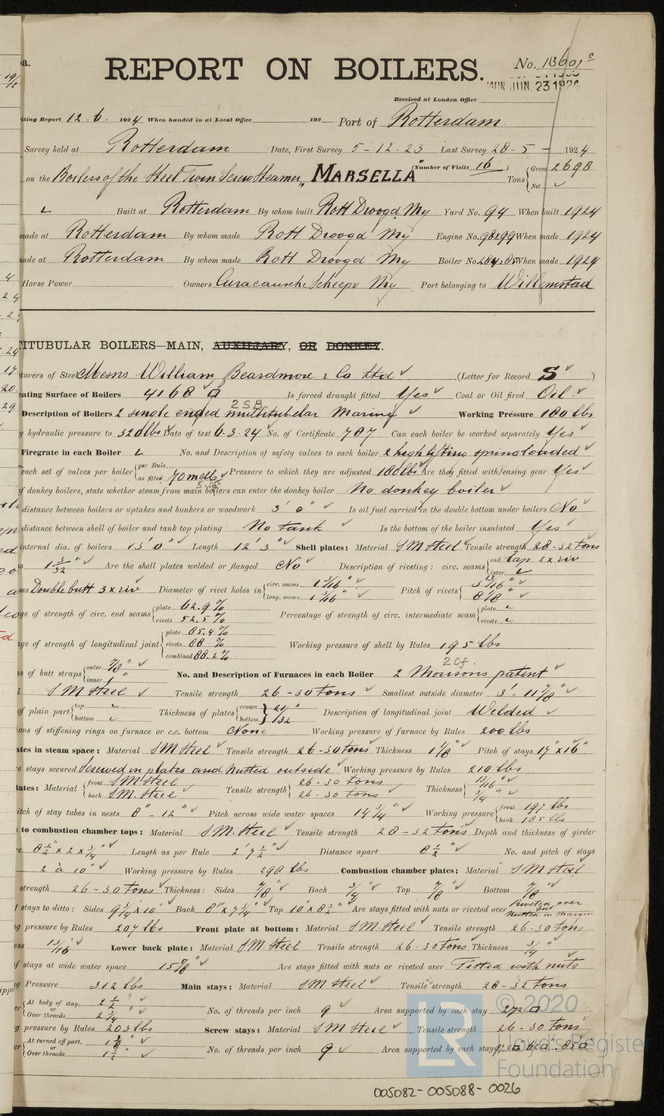 REPORT ON BOILERS.
No. 13601c
JUN 23 1924
Received at London Office
ting Report 12.6. 1924 When handed in at Local Office 190 Port of Rotterdam
Survey held at Rotterdam Date, First Survey 5-12-23 Last Survey 28-5- 1924
(Number of Visits 16)
on the Boilers of the Steel Twin Screw Steamer "MARSELLA" Tons Gross 2698
Net
Built at Rotterdam By whom built Rott Droogd My Yard No. 94 When built 1924
made at Rotterdam By whom made Rott Droogd My Engine No. When made 1924
ade at Rotterdam By whom made Rott Droogd My Boiler No. When made 1924
Horse Power Owners Curacaosche Scheepv My Port belonging to Willemstad
ITUBULAR BOILERS—MAIN, AUXILIARY, OR DONKEY.
turers of Steel Messrs William Beardmore & Co Ltd (Letter for Record S)
ating Surface of Boilers 4168 Is forced draught fitted Yes Coal or Oil fired Oil
2 SB
Description of Boilers 2 single ended multitubular Marine Working Pressure 180 lbs
y hydraulic pressure to 320 lbs Date of test 6.3.24 No. of Certificate 787 Can each boiler be worked separately Yes
Firegrate in each Boiler No. and Description of safety valves to each boiler 2 high lifting spring loaded
each set of valves per boiler per Rule as fitted Pressure to which they are adjusted 180 lbs Are they fitted with easing gear Yes
of donkey boilers, state whether steam from main boilers can enter the donkey boiler No donkey boiler
distance between boilers or uptakes and bunkers or woodwork 3' 0" Is oil fuel carried in the double bottom under boilers No
distance between shell of boiler and tank top plating No tank Is the bottom of the boiler insulated Yes
internal dia. of boilers 13' 0" Length 12' 3" Shell plates: Material SM Steel Tensile strength 28-32 tons
1 3/32 Are the shell plates welded or flanged No Description of riveting: circ. seams end lap 2 x riv
inter.
ms Double butt 3 x riv Diameter of rivet holes in circ. seams 1 1/16" long. seams 1 1/16" Pitch of rivets
ge of strength of circ. end seams plate 62.9% rivets 52.5% Percentage of strength of circ. intermediate seam plate rivets
ge of strength of longitudinal joint plate 85.4% rivets 88% combined 88.2% Working pressure of shell by Rules 195 lbs
2 cf.
s of butt straps outer 7/8" inner 1" No. and Description of Furnaces in each Boiler 2 Morisons patent
SM Steel Tensile strength 26-30 tons Smallest outside diameter 3' 11 7/8"
of plain part top bottom Thickness of plates crown bottom Description of longitudinal joint Welded
ons of stiffening rings on furnace or c.c. bottom None Working pressure of furnace by Rules 200 lbs
ates in steam space: Material SM Steel Tensile strength 26-30 tons Thickness 1 1/8" Pitch of stays 17" x 16"
e stays secured Screwed in plates and nutted outside Working pressure by Rules 210 lbs
lates: Material front SM Steel back SM Steel Tensile strength 26-30 tons 26-30 tons Thickness 13/16" 3/4"
itch of stay tubes in nests 8"-12" Pitch across wide water spaces 14 3/4" Working pressure front 197 lbs back 185 lbs
to combustion chamber tops: Material SM Steel Tensile strength 28-32 tons Depth and thickness of girder
8 1/2 x 2 x 3/4" Length as per Rule 2' 7 1/2" Distance apart 8 1/2" No. and pitch of stays
2 à 10" Working pressure by Rules 290 lbs Combustion chamber plates: Material SM Steel
strength 26-30 tons Thickness: Sides 7/8" Back 3/4" Top 7/8" Bottom 7/8"
f stays to ditto: Sides 9 3/4 x 10" Back 8" x 7 3/4" Top 10" x 8 1/2" Are stays fitted with nuts or riveted over Riveted over but Nutted in margin
g pressure by Rules 207 lbs Front plate at bottom: Material SM Steel Tensile strength 26-30 tons
ess 13/16" Lower back plate: Material SM Steel Tensile strength 26-30 tons Thickness 3/4"
f stays at wide water space 15 7/8" Are stays fitted with nuts or riveted over Fitted with nuts
g Pressure 312 lbs Main stays: Material SM Steel Tensile strength 28-32 tons
At body of stay, or Over threads No. of threads per inch 9 Area supported by each stay 272
g pressure by Rules 203 lbs Screw stays: Material SM Steel Tensile strength 26-30 tons
At turned off part, or Over threads No. of threads per inch 9 Area supported by each stay
005082-005088-0026
LR
© 2020
Lloyd's Register
Foundation